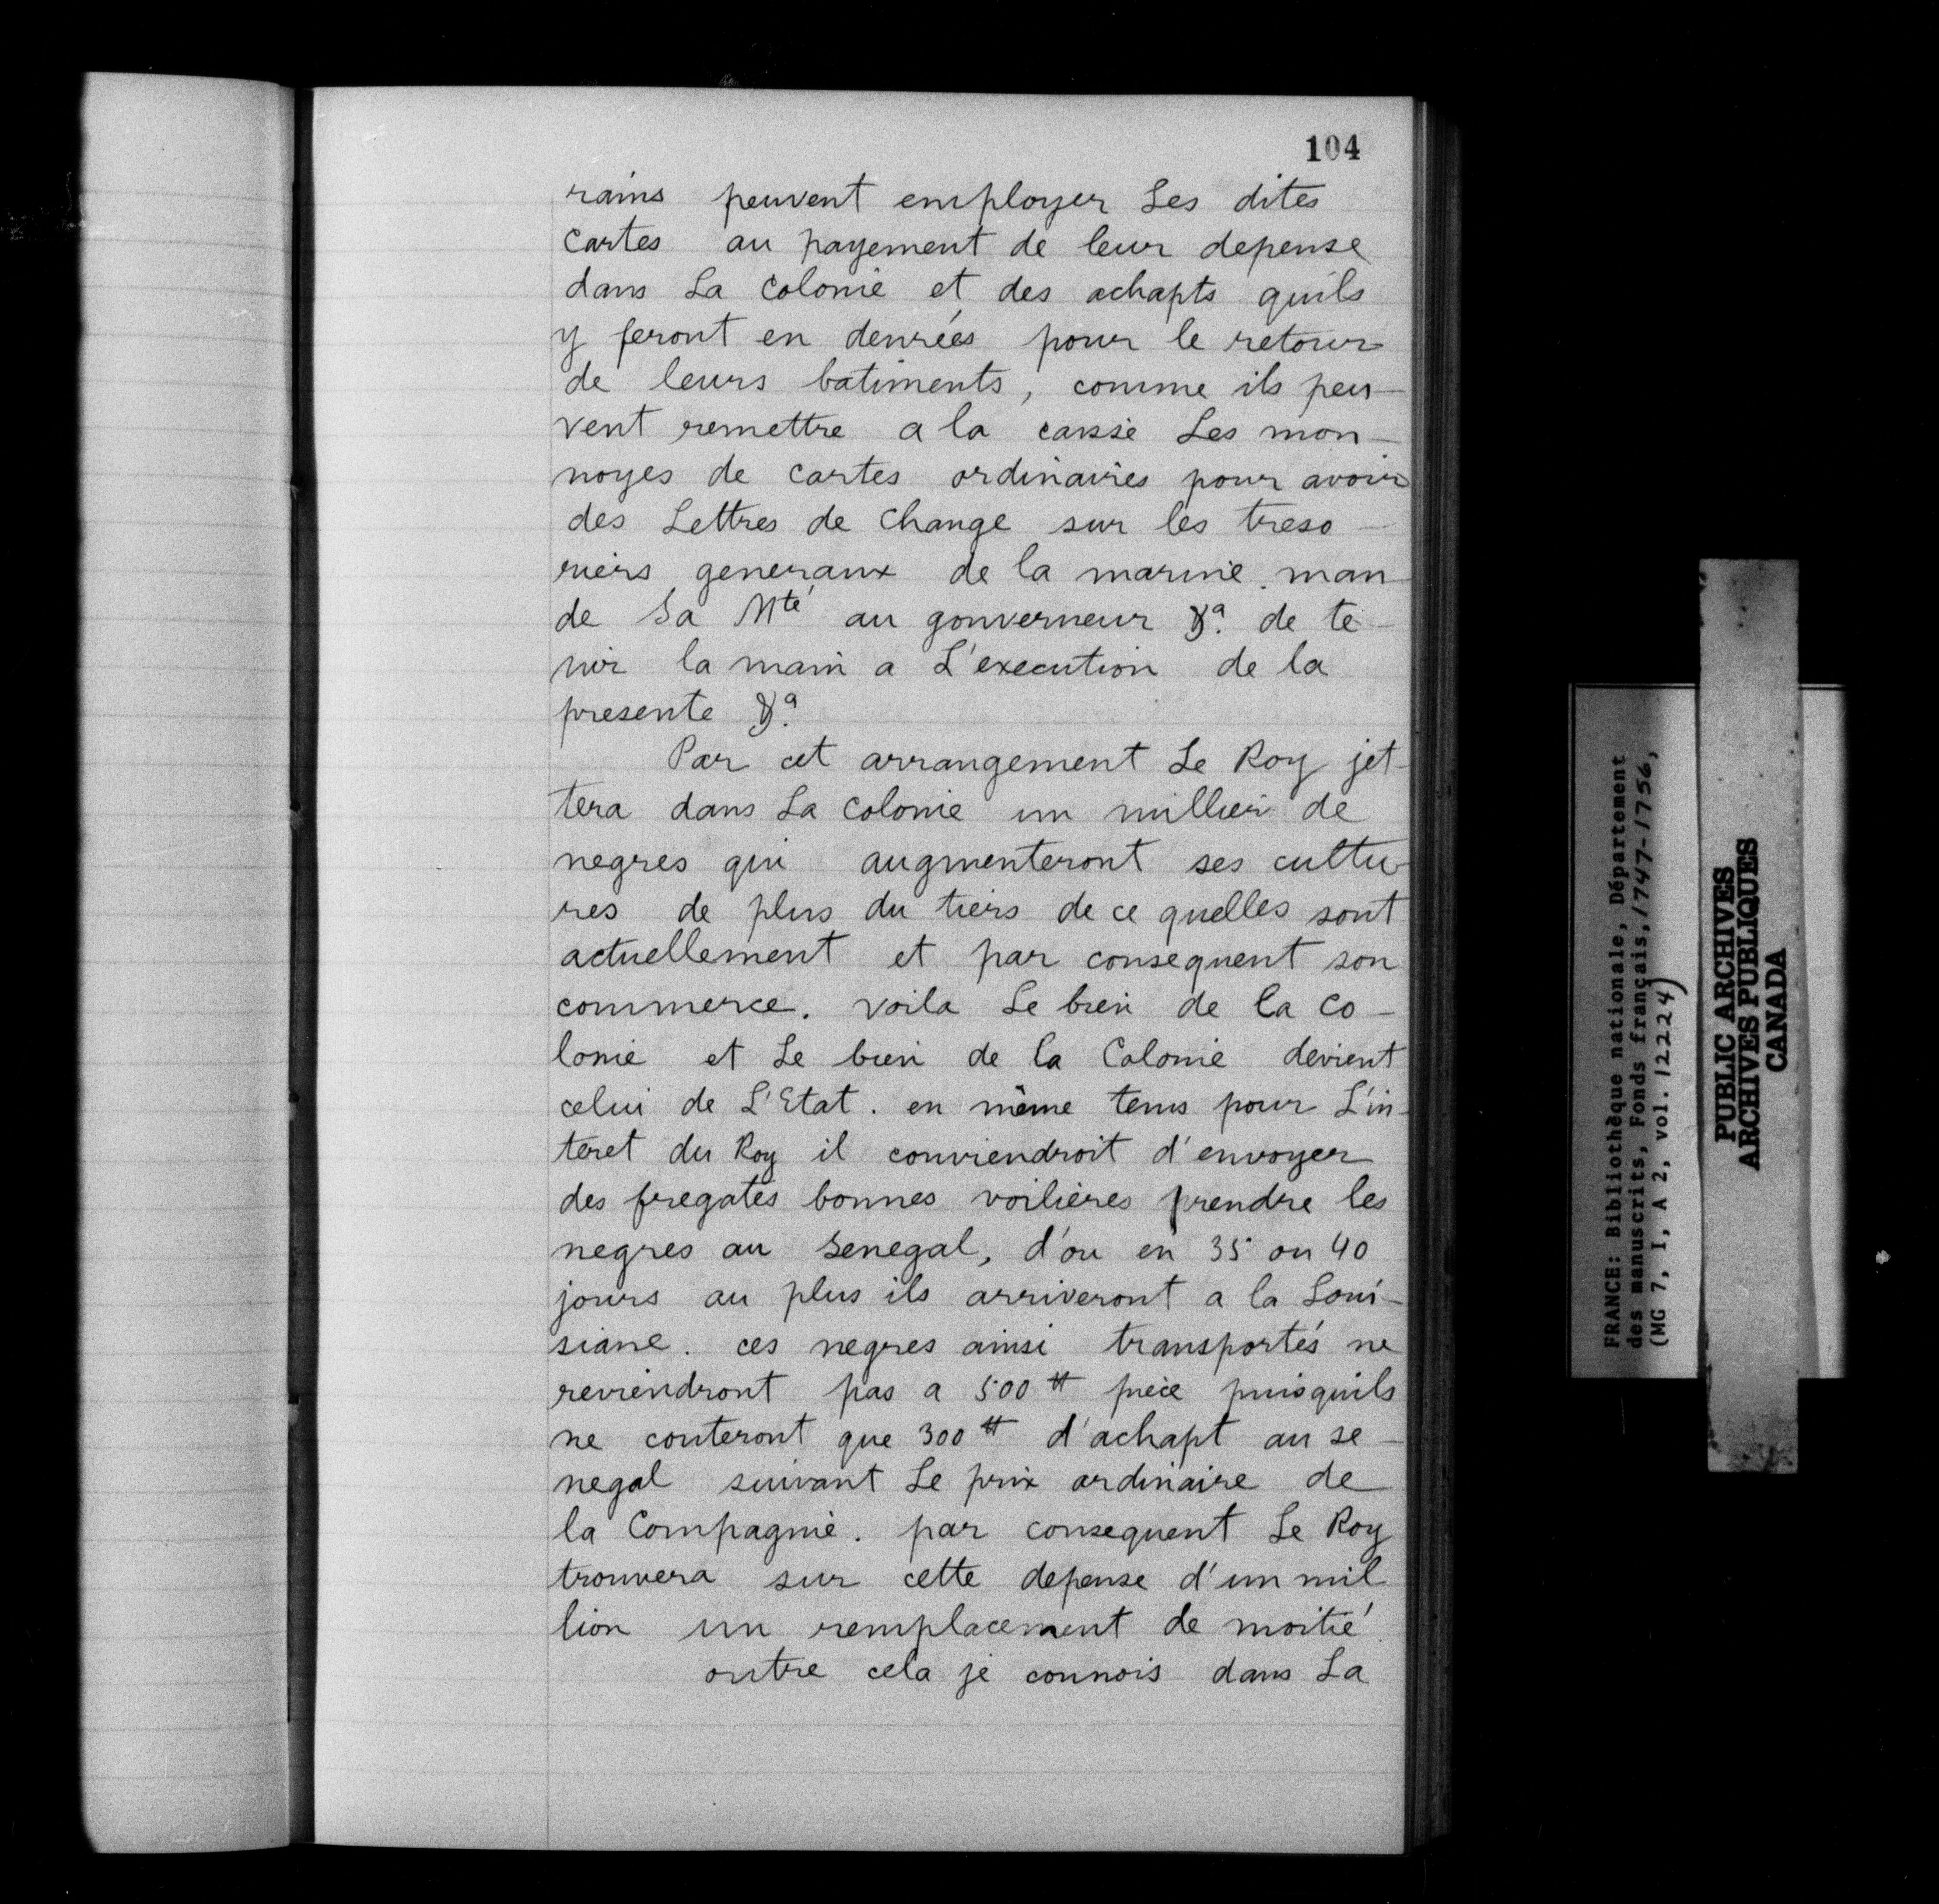 104
rains peuvent employer Les dites
cartes au payement de leur depense
dans La colonie et des achapts quils
y feront en denrées pour le retour
de leurs batiments, comme ils peu-
vent remettre a la caisse Les mon-
noyes de cartes ordinaires pour avoir
des Lettres de change sur les treso-
riers generaux de la marine. man
de Sa Mté au gouverneur &a. de te-
nir la main a L'execution de la
presente &a.
Par cet arrangement Le Roy jet-
tera dans La colonie un millier de
negres qui augmenteront ses cultu-
res de plus du tiers de ce quelles sont
actuellement et par consequent son
commerce. voila Le bien de la co-
lonie et Le bien de la Colonie devient
celui de L'Etat. en même tems pour L'in-
teret du Roy il conviendroit d'envoyer
des fregates bonnes voilières prendre les
negres au senegal, d'ou en 35 ou 40
jours au plus ils arriveront a la Loui-
siane. ces negres ainsi transportés ne
reviendront pas a 500 ₶ pièce puisquils
ne couteront que 300 ₶ d'achapt au se-
negal suivant Le prix ordinaire de
la Compagnie. par consequent Le Roy
trouvera sur cette depense d'un mil
lion un remplacement de moitié
outre cela je connois dans La
FRANCE: Bibliothèque nationale, Département
des manuscrits, Fonds français, 1747-1756,
(MG 7, I, A 2, vol. 12224)
PUBLIC ARCHIVES
ARCHIVES PUBLIQUES
CANADA